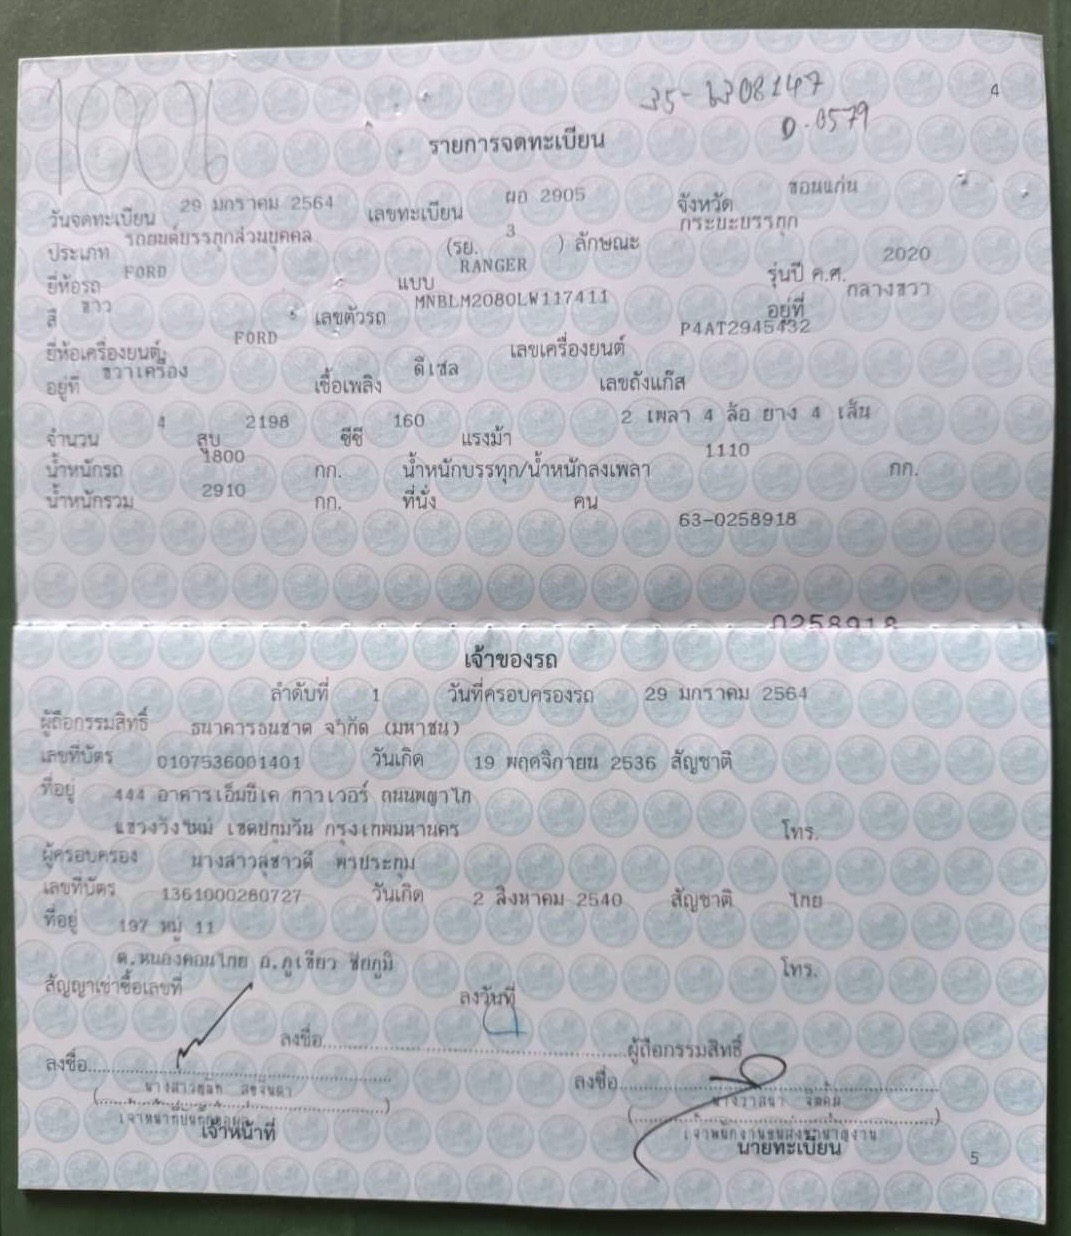 1006
35-6308147
4
0.0579
รายการจดทะเบียน
วันจดทะเบียน 29 มกราคม 2564 เลขทะเบียน ผอ 2905 จังหวัด ขอนแก่น
ประเภท รถยนต์บรรทุกส่วนบุคคล (รย. 3 ) ลักษณะ กระบะบรรทุก
ยี่ห้อรถ FORD แบบ RANGER รุ่นปี ค.ศ. 2020
สี ขาว เลขตัวรถ MNBLM2080LW117411 อยู่ที่ กลางขวา
ยี่ห้อเครื่องยนต์ FORD เลขเครื่องยนต์ P4AT2945432
อยู่ที่ ขวาเครื่อง เชื้อเพลิง ดีเซล เลขถังแก๊ส
จำนวน 4 สูบ 2198 ซีซี 160 แรงม้า 2 เพลา 4 ล้อ ยาง 4 เส้น
น้ำหนักรถ 1800 กก. น้ำหนักบรรทุก/น้ำหนักลงเพลา 1110 กก.
น้ำหนักรวม 2910 กก. ที่นั่ง คน
63-0258918
0258918
เจ้าของรถ
ลำดับที่ 1 วันที่ครอบครองรถ 29 มกราคม 2564
ผู้ถือกรรมสิทธิ์ ธนาคารธนชาต จำกัด (มหาชน)
เลขที่บัตร 0107536001401 วันเกิด 19 พฤศจิกายน 2536 สัญชาติ
ที่อยู่ 444 อาคารเอ็มบีเค ทาวเวอร์ ถนนพญาไท
แขวงวังใหม่ เขตปทุมวัน กรุงเทพมหานคร โทร.
ผู้ครอบครอง นางสาวสุชาวดี พรประทุม
เลขที่บัตร 1361000280727 วันเกิด 2 สิงหาคม 2540 สัญชาติ ไทย
ที่อยู่ 197 หมู่ 11
ต.หนองคอนไทย อ.ภูเขียว ชัยภูมิ โทร.
สัญญาเช่าซื้อเลขที่ ลงวันที่
ลงชื่อ ผู้ถือกรรมสิทธิ์
ลงชื่อ ลงชื่อ
นางสาว นางวาสนา
เจ้าหน้าที่ เจ้าพนักงานขนส่งชำนาญงาน
นายทะเบียน
5